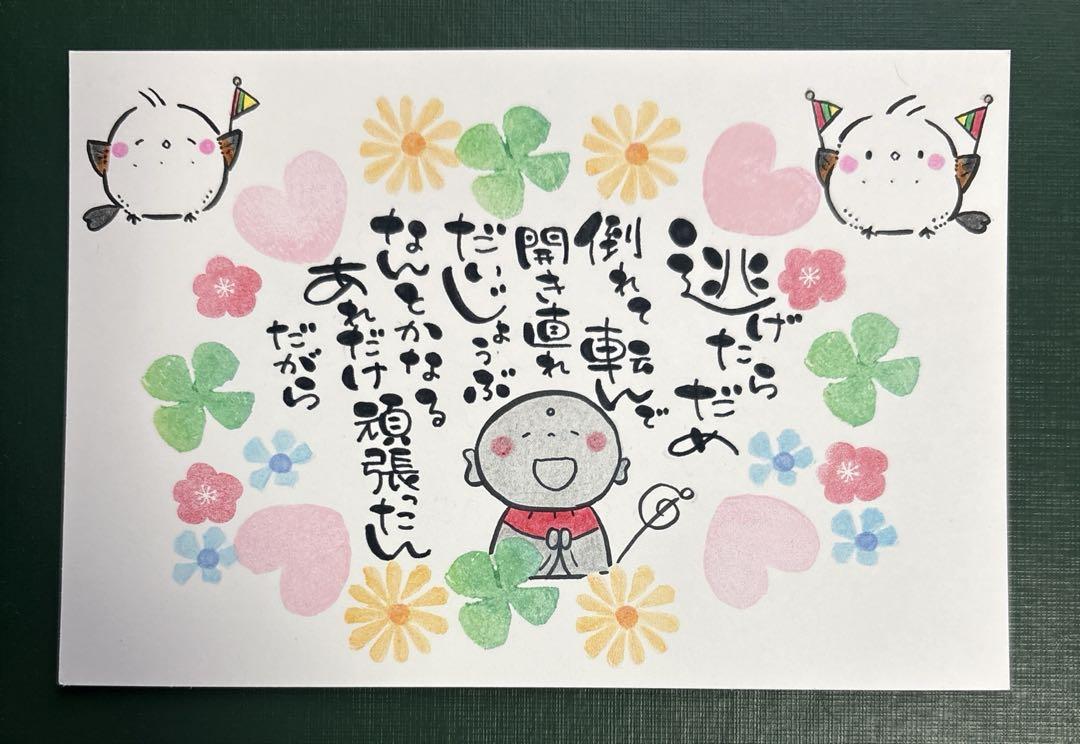 逃げたらだめ
倒れて転んで
開き直れ
だいじょうぶ
なんとかなる
あれだけ頑張ったん
だから